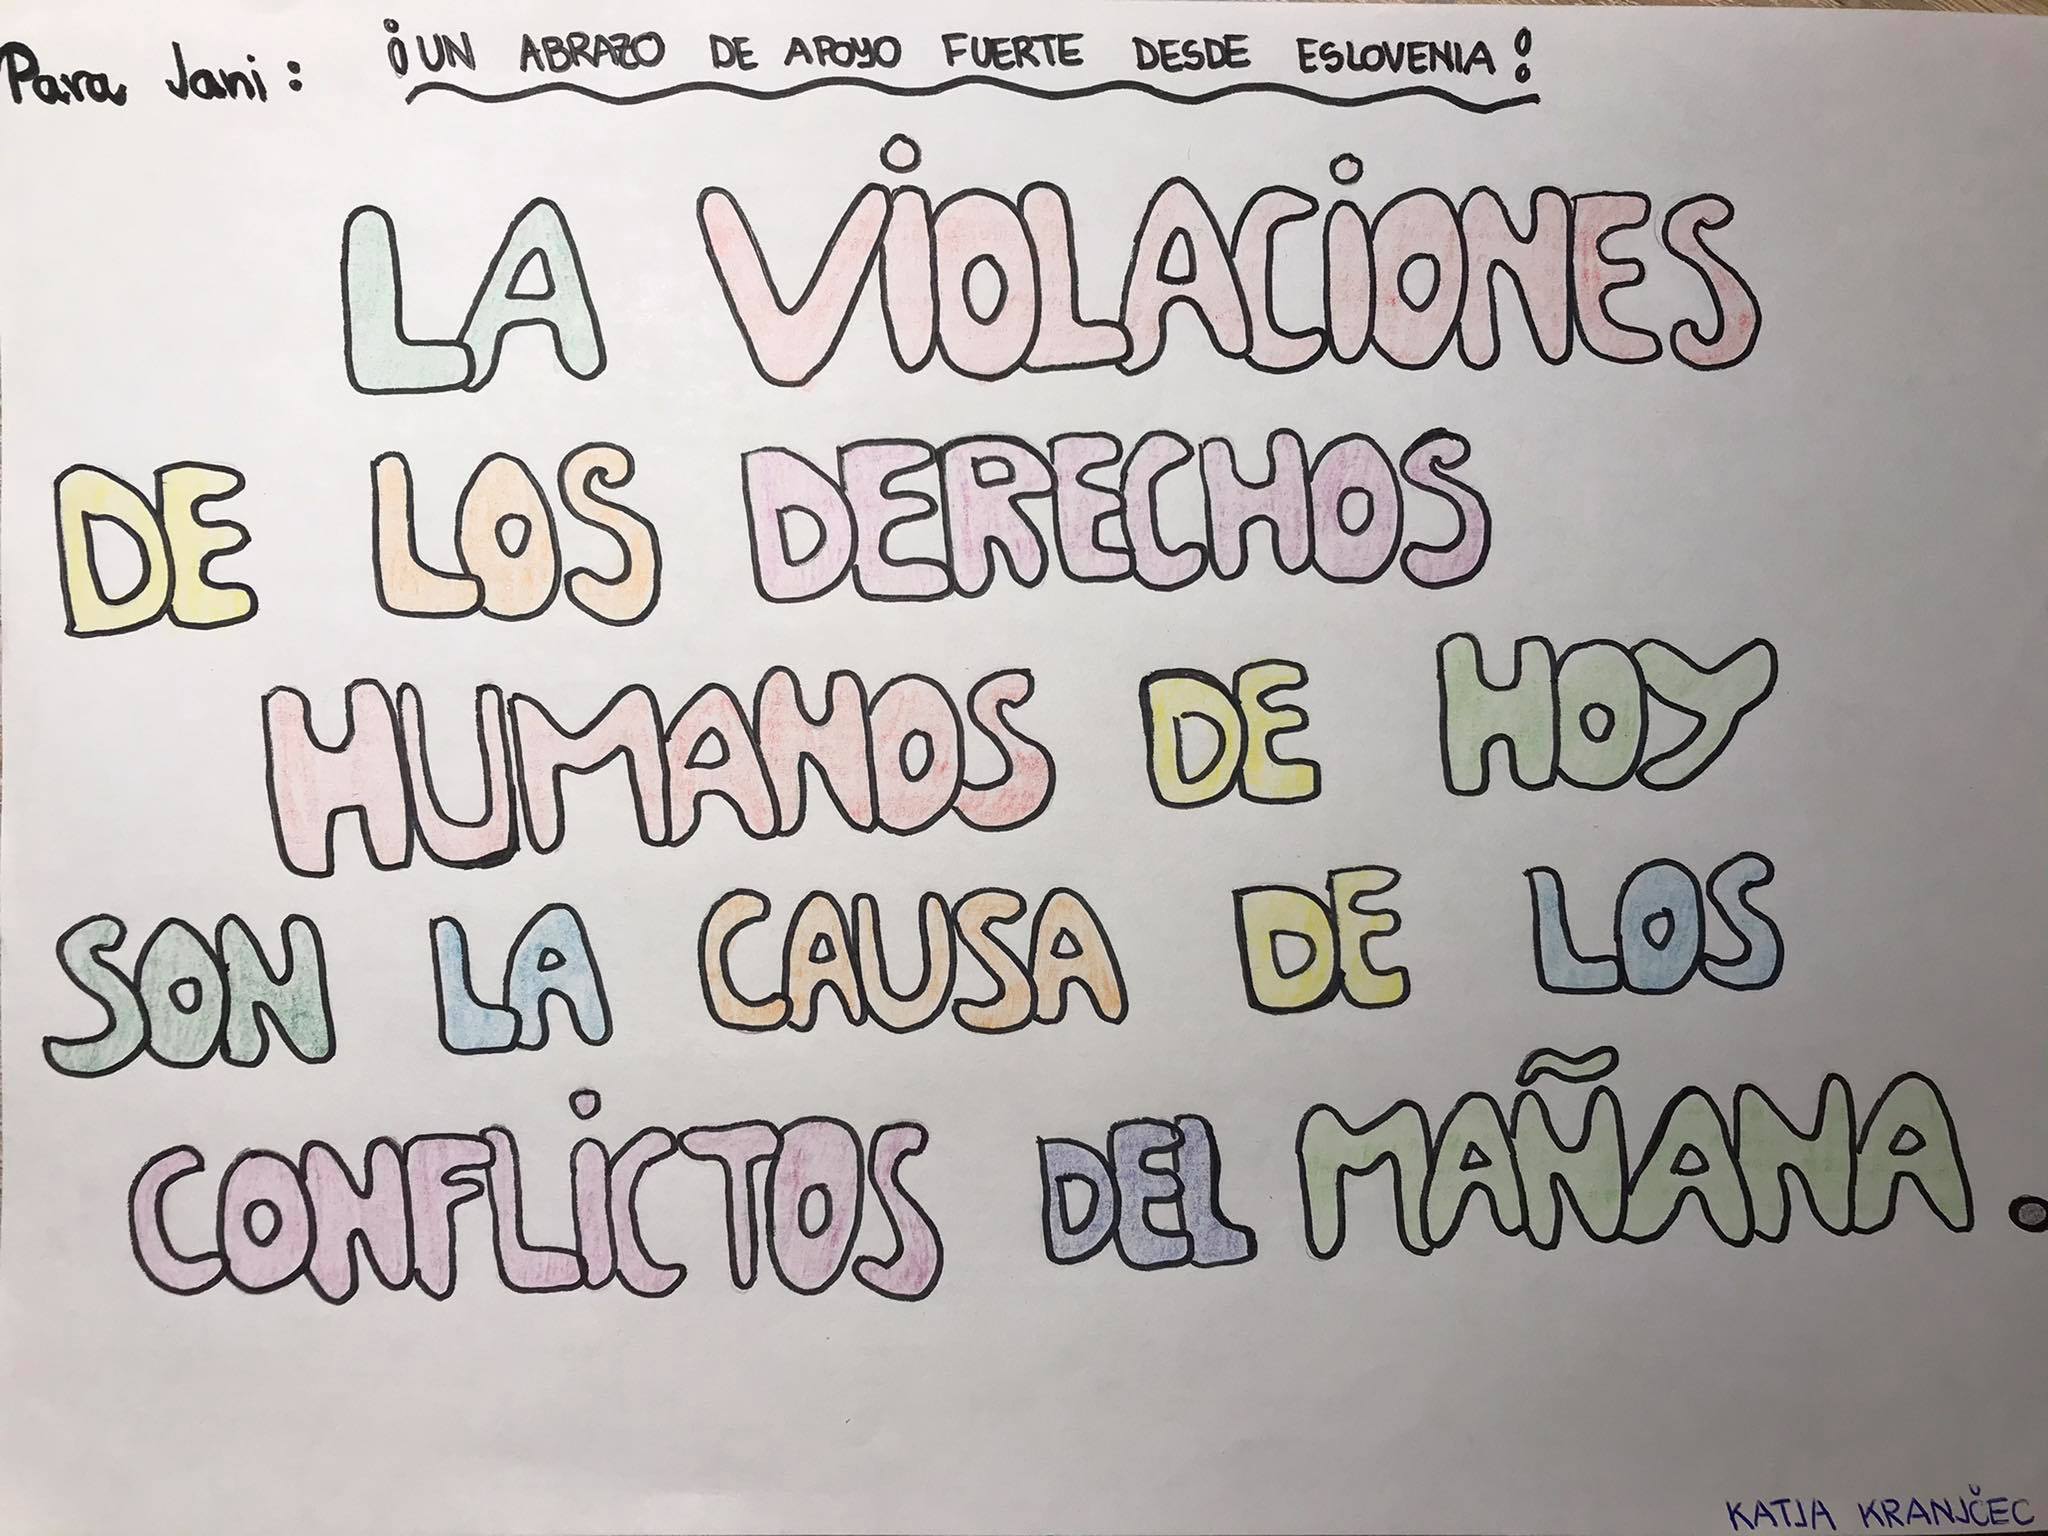 Para Jani: ¡UN ABRAZO DE APOYO FUERTE DESDE ESLOVENIA!
LA VIOLACIONES
DE LOS DERECHOS
HUMANOS DE HOY
SON LA CAUSA DE LOS
CONFLICTOS DEL MAÑANA.
KATJA KRANJČEC